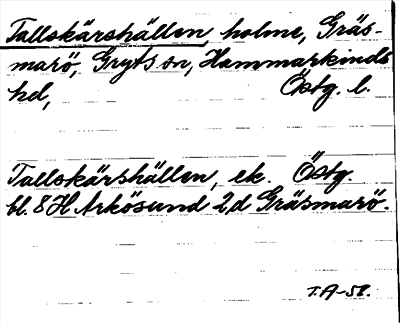 Tallskärshällen, holme, Gräs-
marö, Gryts sn, Hammarkinds
hd, Östg. l.
Tallskärshällen, ek. Östg.
bl. 8 H Arkösund 2,d Gräsmarö.
T.A-58.